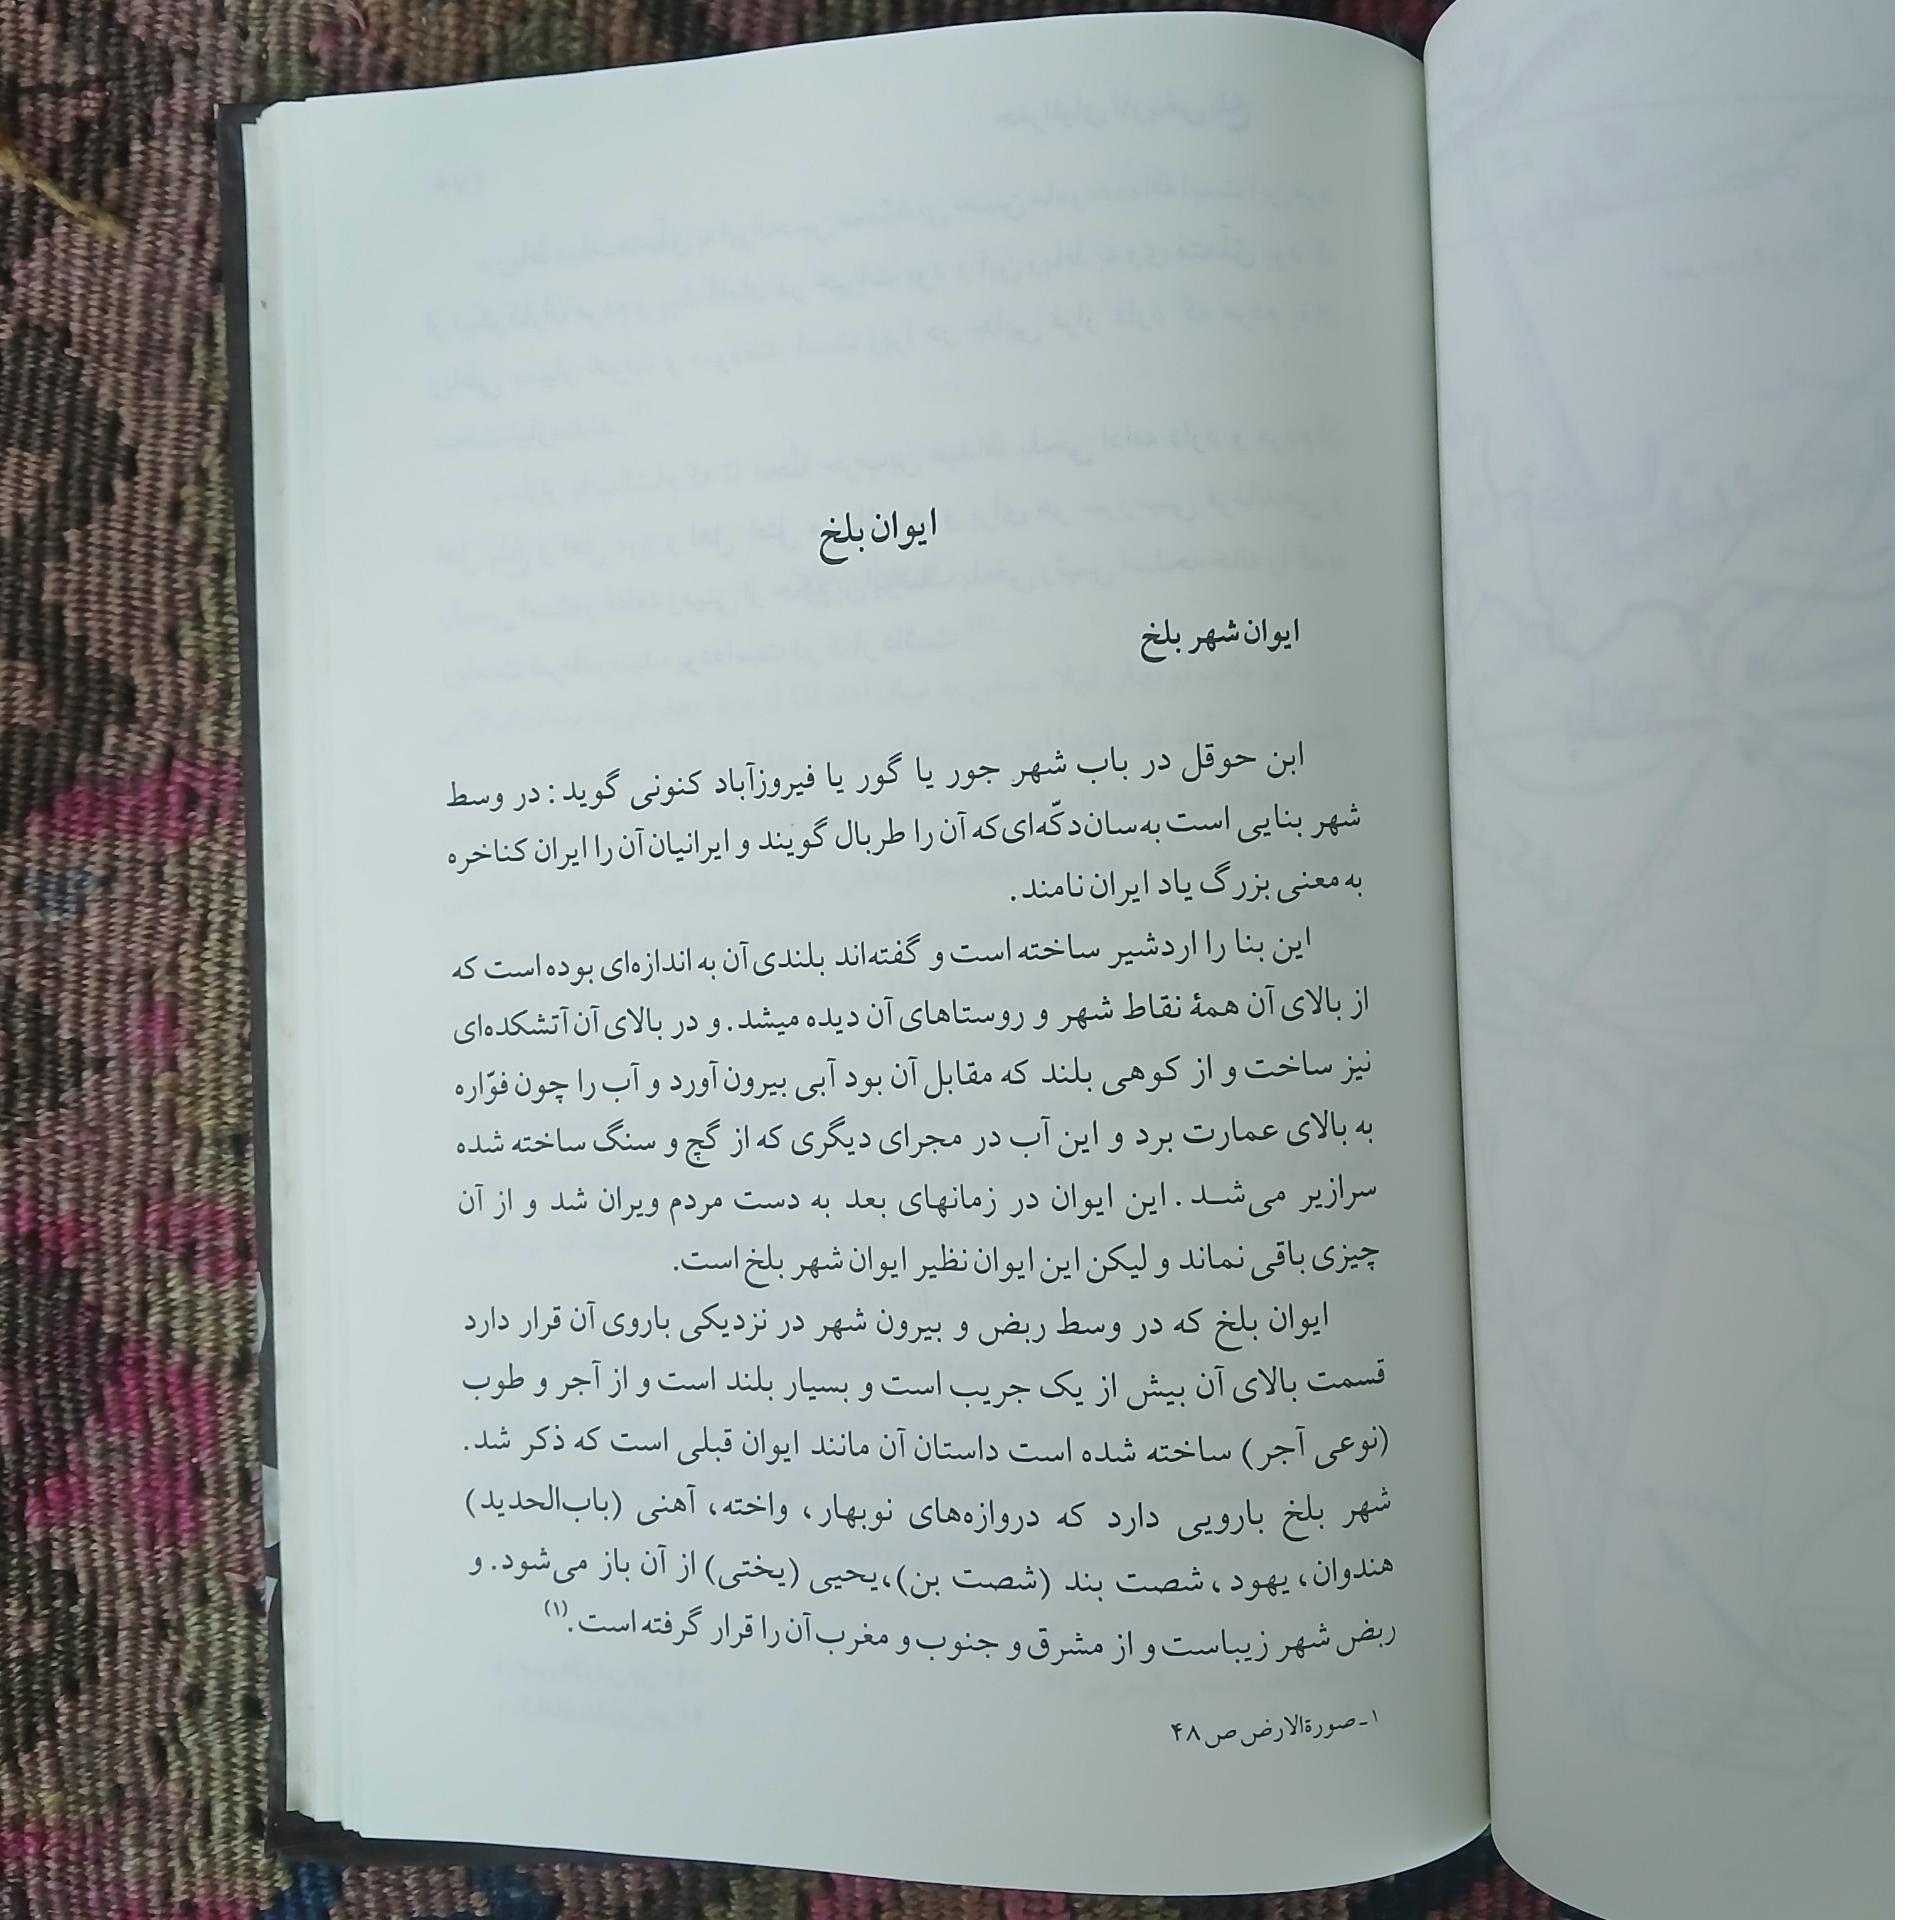 ایوان بلخ
ایوان شهر بلخ
ابن حوقل در باب شهر جور یا گور یا فیروزآباد کنونی گوید: در وسط
شهر بنایی است به‌سان دکّه‌ای که آن را طربال گویند و ایرانیان آن را ایران کناخره
به معنی بزرگ یاد ایران نامند.
این بنا را اردشیر ساخته است و گفته‌اند بلندی آن به اندازه‌ای بوده است که
از بالای آن همهٔ نقاط شهر و روستاهای آن دیده میشد. و در بالای آن آتشکده‌ای
نیز ساخت و از کوهی بلند که مقابل آن بود آبی بیرون آورد و آب را چون فوّاره
به بالای عمارت برد و این آب در مجرای دیگری که از گچ و سنگ ساخته شده
سرازیر می‌شد. این ایوان در زمانهای بعد به دست مردم ویران شد و از آن
چیزی باقی نماند و لیکن این ایوان نظیر ایوان شهر بلخ است.
ایوان بلخ که در وسط ربض و بیرون شهر در نزدیکی باروی آن قرار دارد
قسمت بالای آن بیش از یک جریب است و بسیار بلند است و از آجر و طوب
(نوعی آجر) ساخته شده است داستان آن مانند ایوان قبلی است که ذکر شد.
شهر بلخ بارویی دارد که دروازه‌های نوبهار، واخته، آهنی (باب‌الحدید)
هندوان، یهود، شصت بند (شصت بن)،یحیی (یختی) از آن باز می‌شود. و
ربض شهر زیباست و از مشرق و جنوب و مغرب آن را قرار گرفته است.(۱)
۱ـ صورةالارض ص ۴۸